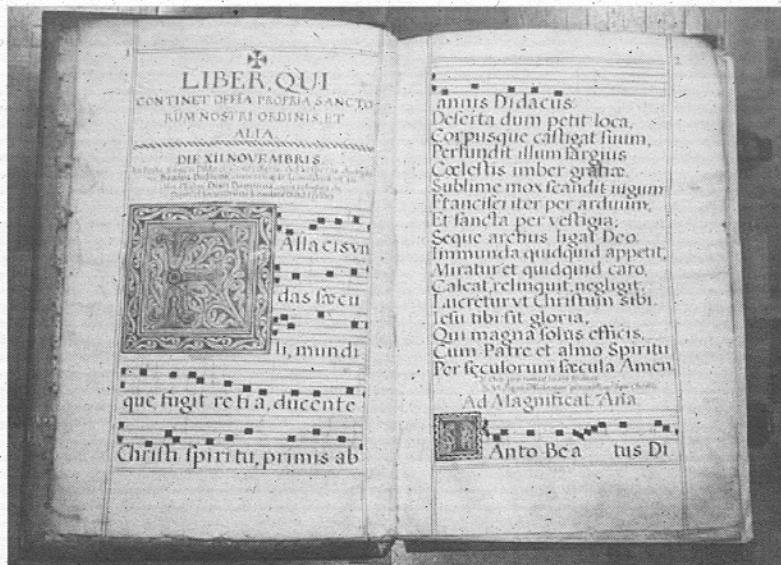 1
LIBER, QUI
CONTINET OFFIA PROPRIA SANCTO
RUM NOSTRI ORDINIS, ET
ALIA.
DIE XII NOVEMBRIS.
FAllacis vn
das sæcu
li, mundi
que, fugit retia, ducente
Christi spiritu, primis ab
2
annis Didacus.
Deserta dum petit loca,
Corpusque castigat suum,
Perfundit illum largius
Cœlestis imber gratiæ.
Sublime mox scandit iugum
Francisci iter per arduum,
Et sancta per vestigia,
Seque arctius ligat Deo.
Immunda quidquid appetit,
Miratur et quidquid caro,
Calcat, relinquit, negligit,
Lucretur vt Christum sibi.
Iesu tibi sit gloria,
Qui magna solus efficis,
Cum Patre et almo Spiritu
Per sęculorum sæcula Amen.
Ad Magnificat, Aña.
TAnto Bea tus Di